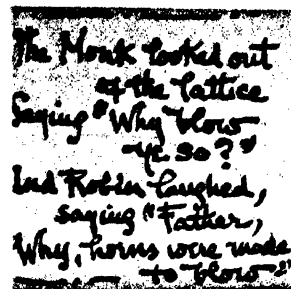 The Monk looked out
of the lattice
Saying "Why blow
ye so?"
And Robin laughed,
saying "Father,
Why, horns were made
to blow."